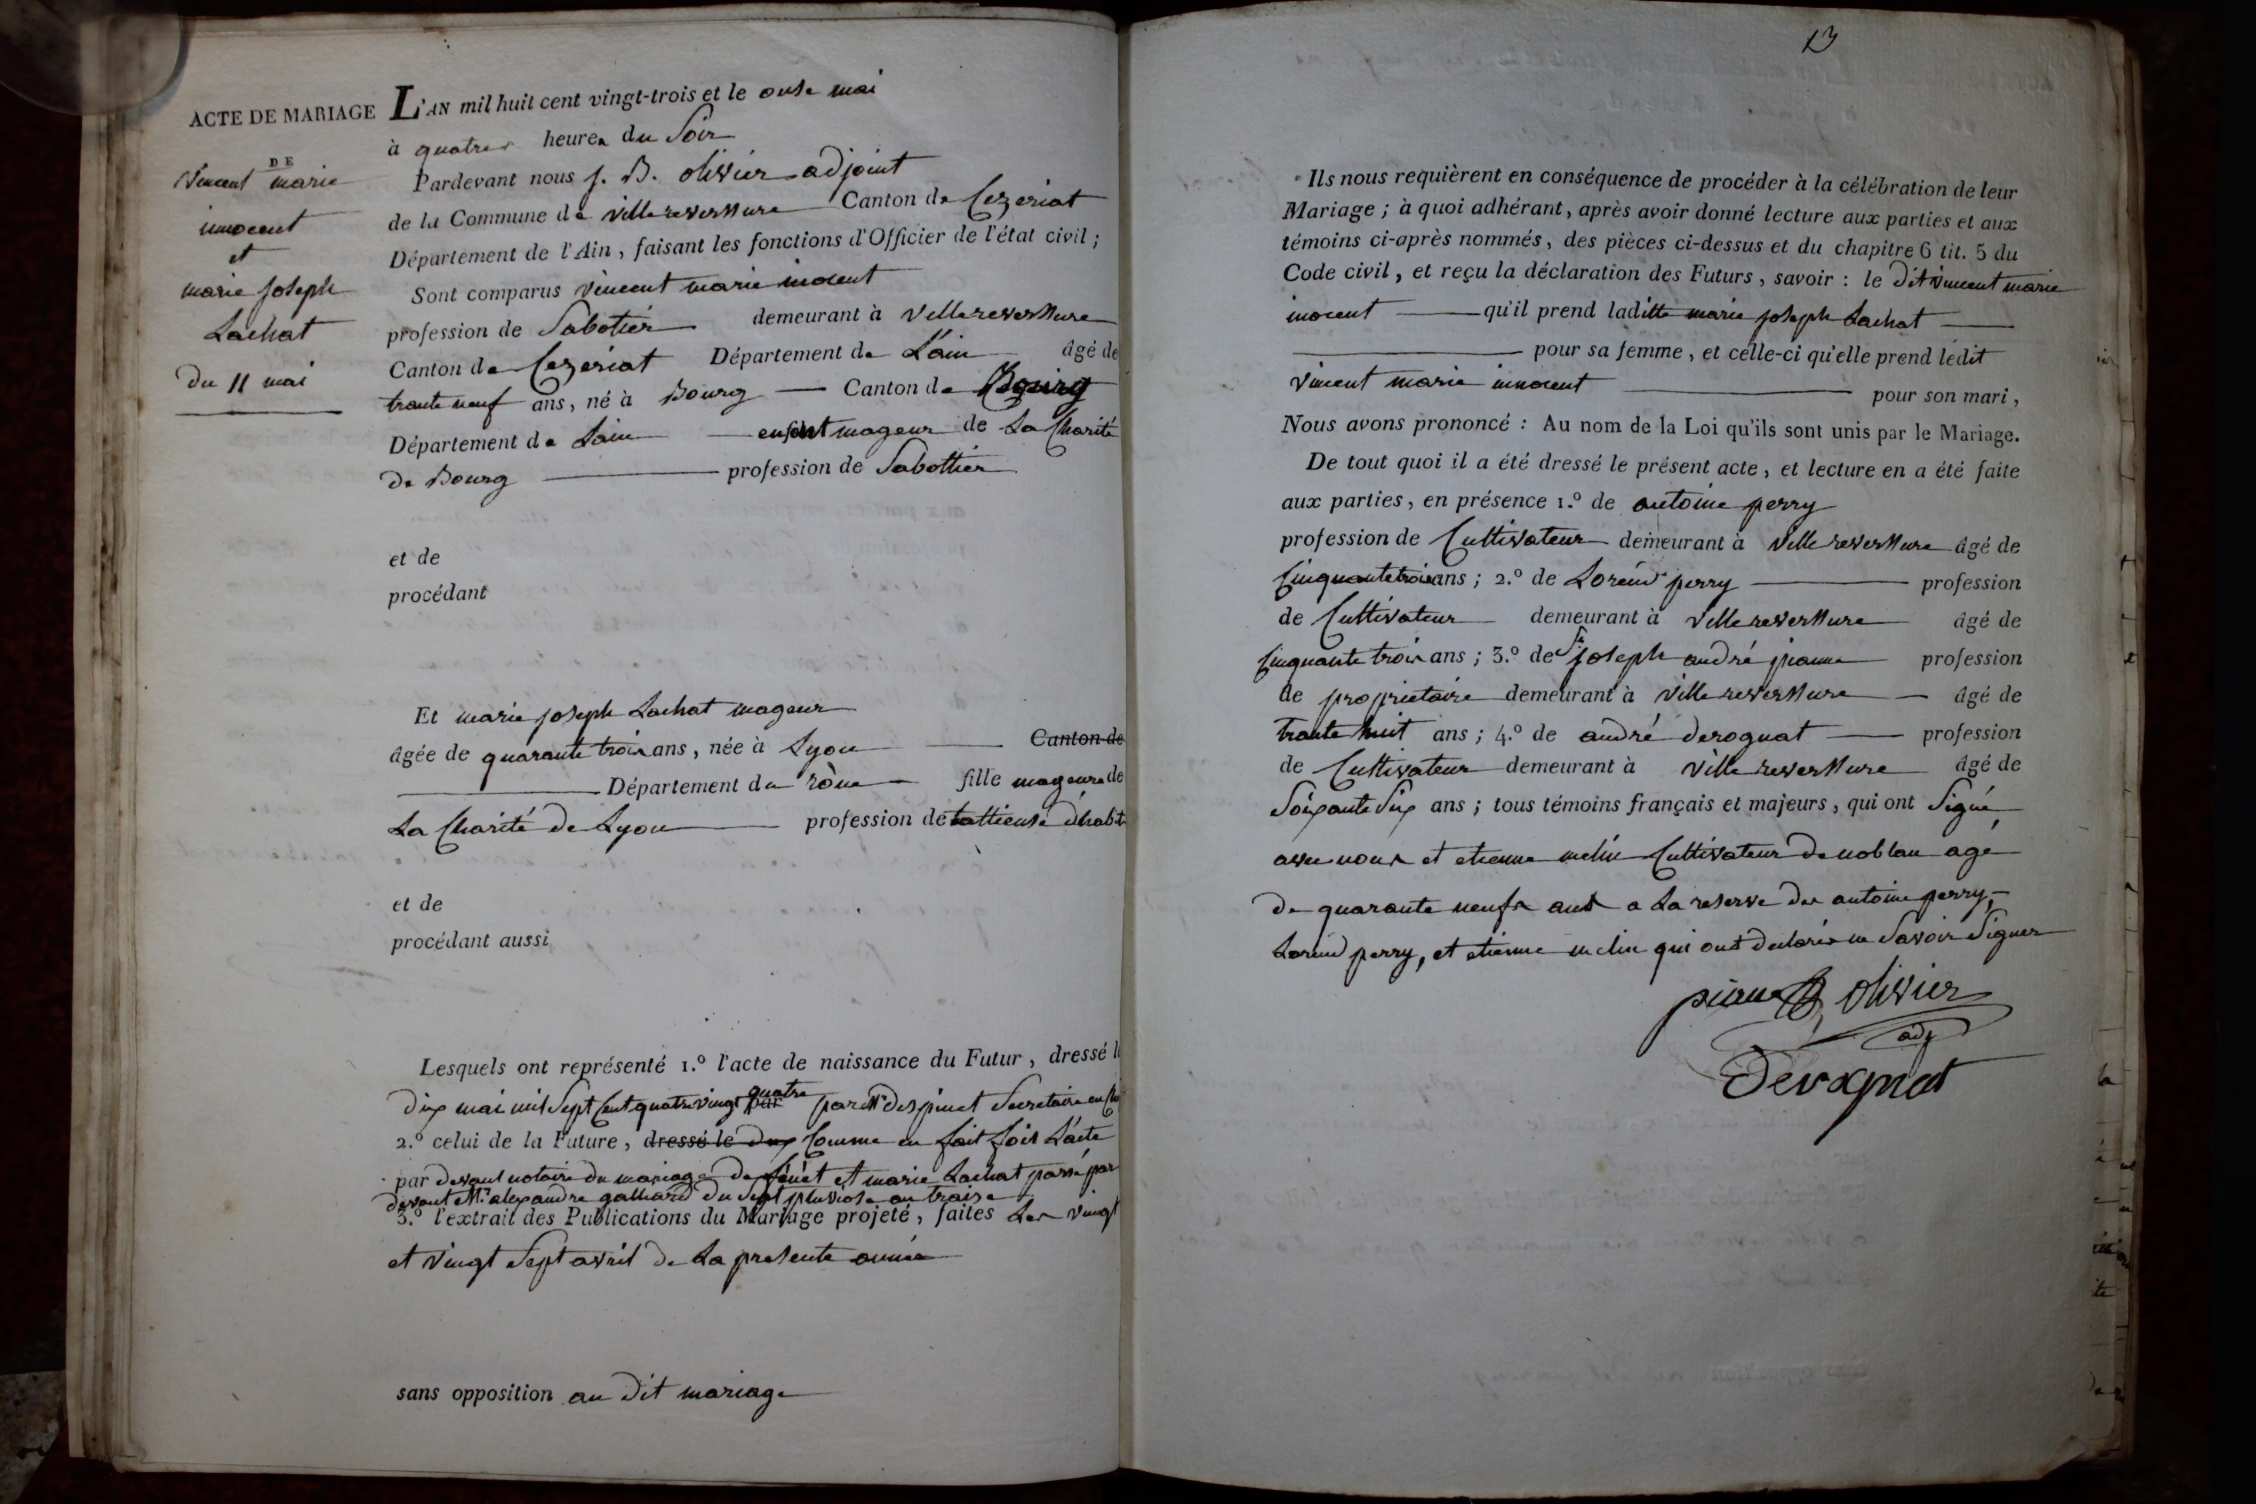 ACTE DE MARIAGE
DE
Vincent marie
innocent
et
marie joseph
Lachat
du 11 mai
L'AN mil huit cent vingt-trois et le onse mai
à quatre heures du soir
Pardevant nous j. B. olivier adjoint
de la Commune de villereverssure Canton de Cezeriat
Département de l'Ain, faisant les fonctions d'Officier de l'état civil;
Sont comparus vincent marie inocent
profession de Sabotier demeurant à villereverssure
Canton de Cezeriat Département de L'ain âgé de
trante neuf ans, né à Bourg Canton de Bourg
Département de Lain enfant mageur de La Charité
de Bourg profession de Sabottier
et de
procédant
Et marie joseph Lachat mageur
âgée de quarante trois ans, née à Lyon Canton de
Département du rône fille mageure de
La Charité de Lyon profession de tallieuse d'habit
et de
procédant aussi
Lesquels ont représenté 1.º l'acte de naissance du Futur, dressé l
dix mai mil sept cent quatre vingt quatre par par Mr despinet Secretaire en
2.º celui de la Future, dressé le dux Comme en fait fois L'acte
par devant notaire du mariage de et marie Lachat passé par
devant Mr alexandre galliard du Sept pluviose an traise
3.º l'extrait des Publications du Mariage projeté, faites Les vingt
et vingt Sept avril de La presente année
sans opposition au dit mariage
13
Ils nous requièrent en conséquence de procéder à la célébration de leur
Mariage; à quoi adhérant, après avoir donné lecture aux parties et aux
témoins ci-après nommés, des pièces ci-dessus et du chapitre 6 tit. 5 du
Code civil, et reçu la déclaration des Futurs, savoir: le dit vincent marie
inocent qu'il prend laditte marie joseph Lachat
pour sa femme, et celle-ci qu'elle prend ledit
vincent marie innocent pour son mari,
Nous avons prononcé: Au nom de la Loi qu'ils sont unis par le Mariage.
De tout quoi il a été dressé le présent acte, et lecture en a été faite
aux parties, en présence 1.º de antoine perry
profession de Cultivateur demeurant à villereverssure âgé de
Cinquante trois ans; 2.º de Lorend perry profession
de Cultivateur demeurant à villereverssure âgé de
Cinquante trois ans; 3.º de Sr joseph andré pianne profession
de proprietaire demeurant à villereverssure âgé de
trante huit ans; 4.º de andré derognat profession
de Cultivateur demeurant à villereverssure âgé de
Soixante Six ans; tous témoins français et majeurs, qui ont Signé
avec nous et etienne melin Cultivateur de noblan agé
de quarante neufs ans a La reserve des antoine perry,
Lorend perry, et etienne melin qui ont declarés ne Savoir Signer
piane B olivier
adj
Derognat